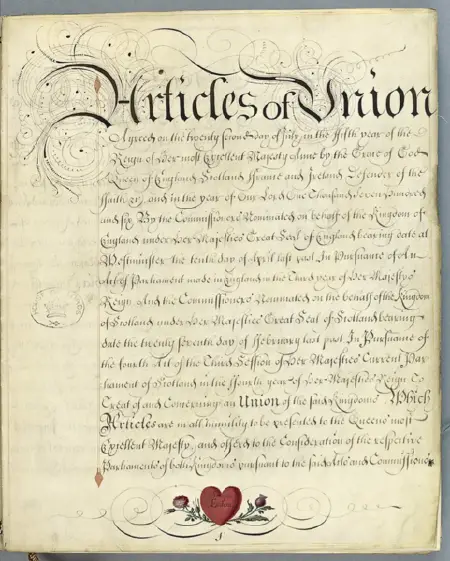 Articles of Union
Agreed on the twenty second day of July, in the fifth year of the
Reign of Her most Excellent Majesty Anne by the Grace of God
Queen of England Scotland France and Ireland Defender of the
Faith &c, and in the year of Our Lord One Thousand Seven Hundred
and six. By the Commissioners Nominated on behalf of the Kingdom of
England under Her Majesties Great Seal of England bearing date at
Westminster the tenth day of April last past In Pursuance of
Act of Parliament made in England in the Third year of Her Majestys
Reign And the Commissioners Nominated on the behalf of the Kingdom
of Scotland under Her Majesties Great Seal of Scotland bearing
date the twenty seventh day of February last past In Pursuance of
the fourth Act of the Third Session of Her Majesties Current Par
liament of Scotland in the fourth year of Her Majesties Reign To
Treat of and Concerning an Union of the said Kingdoms Which
Articles are in all humility to be presented to the Queens most
Excellent Majesty, and offered to the Consideration of the respective
Parliaments of both Kingdoms pursuant to the said Acts and Commissions
1